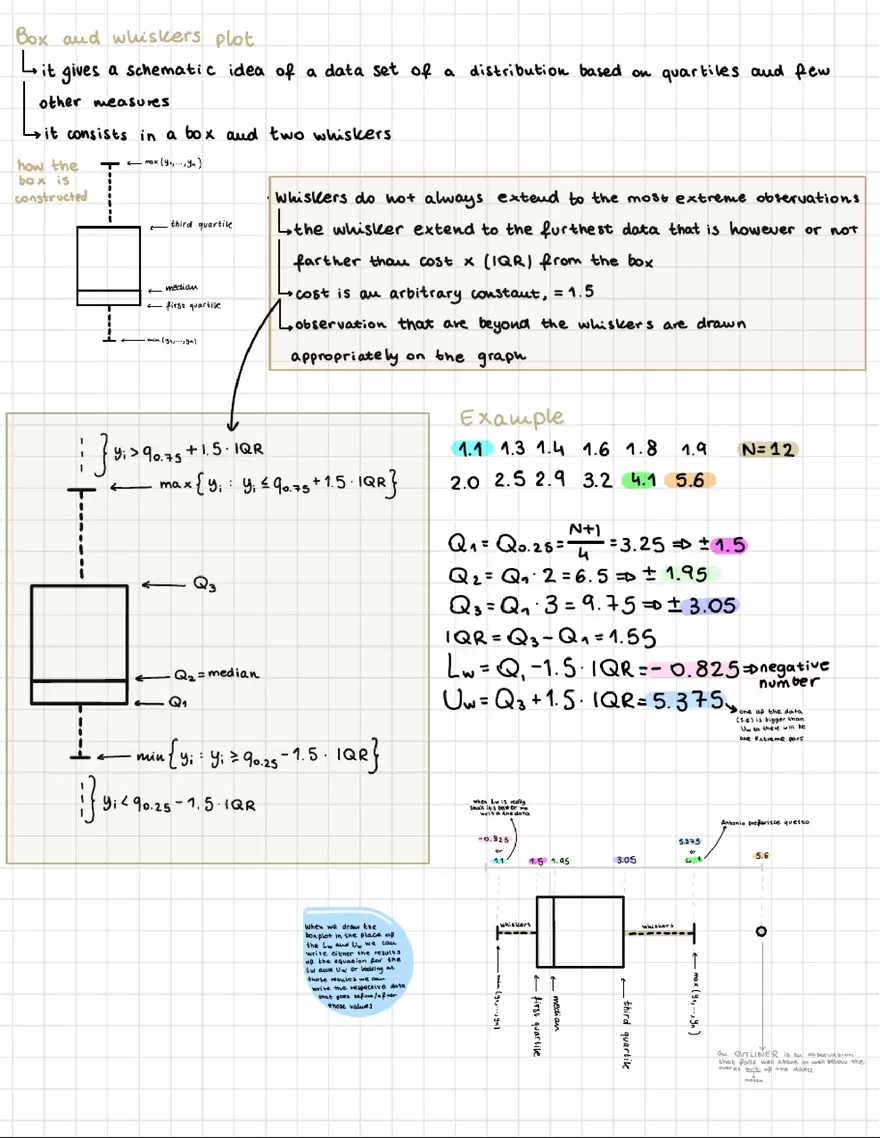 Box and whiskers plot
it gives a schematic idea of a data set of a distribution based on quartiles and few
other measures
it consists in a box and two whiskers
how the
box is
constructed
max(y₁,...,yₙ)
third quartile
median
first quartile
min(y₁,...,yₙ)
Whiskers do not always extend to the most extreme observations
the whisker extend to the furthest data that is however or not
farther than cost x (IQR) from the box
cost is an arbitrary constant, = 1.5
observation that are beyond the whiskers are drawn
appropriately on the graph
} yᵢ > q₀.₇₅ + 1.5 · IQR
max { yᵢ : yᵢ ≤ q₀.₇₅ + 1.5 · IQR }
Q₃
Q₂ = median
Q₁
min { yᵢ : yᵢ ≥ q₀.₂₅ - 1.5 · IQR }
} yᵢ < q₀.₂₅ - 1.5 · IQR
Example
1.1 1.3 1.4 1.6 1.8 1.9 N=12
2.0 2.5 2.9 3.2 4.1 5.6
Q₁ = Q₀.₂₅ = N+1/4 = 3.25 ⇒ ± 1.5
Q₂ = Q₁ · 2 = 6.5 ⇒ ± 1.95
Q₃ = Q₁ · 3 = 9.75 ⇒ ± 3.05
IQR = Q₃ - Q₁ = 1.55
Lw = Q₁ - 1.5 · IQR = - 0.825 ⇒ negative
number
Uw = Q₃ + 1.5 · IQR = 5.375
one of the data
(5.6) is bigger than
Uw so there will be
one extreme part
When Lw is really
small it's better to
write the data
Antonio preferisce questo
-0.825
or
1.1
1.5
1.95
3.05
5.375
or
4.1
5.6
whiskers
whiskers
min(y₁,...,yₙ)
first quartile
median
third quartile
max(y₁,...,yₙ)
When we draw the
boxplot in the place of
the Lw and Uw we can
write either the results
of the equation for the
Lw and Uw or looking at
those results we can
write the respective data
that goes before/after
those values
an OUTLINER is an observation
that falls well above or well below the
overall bulk of the data